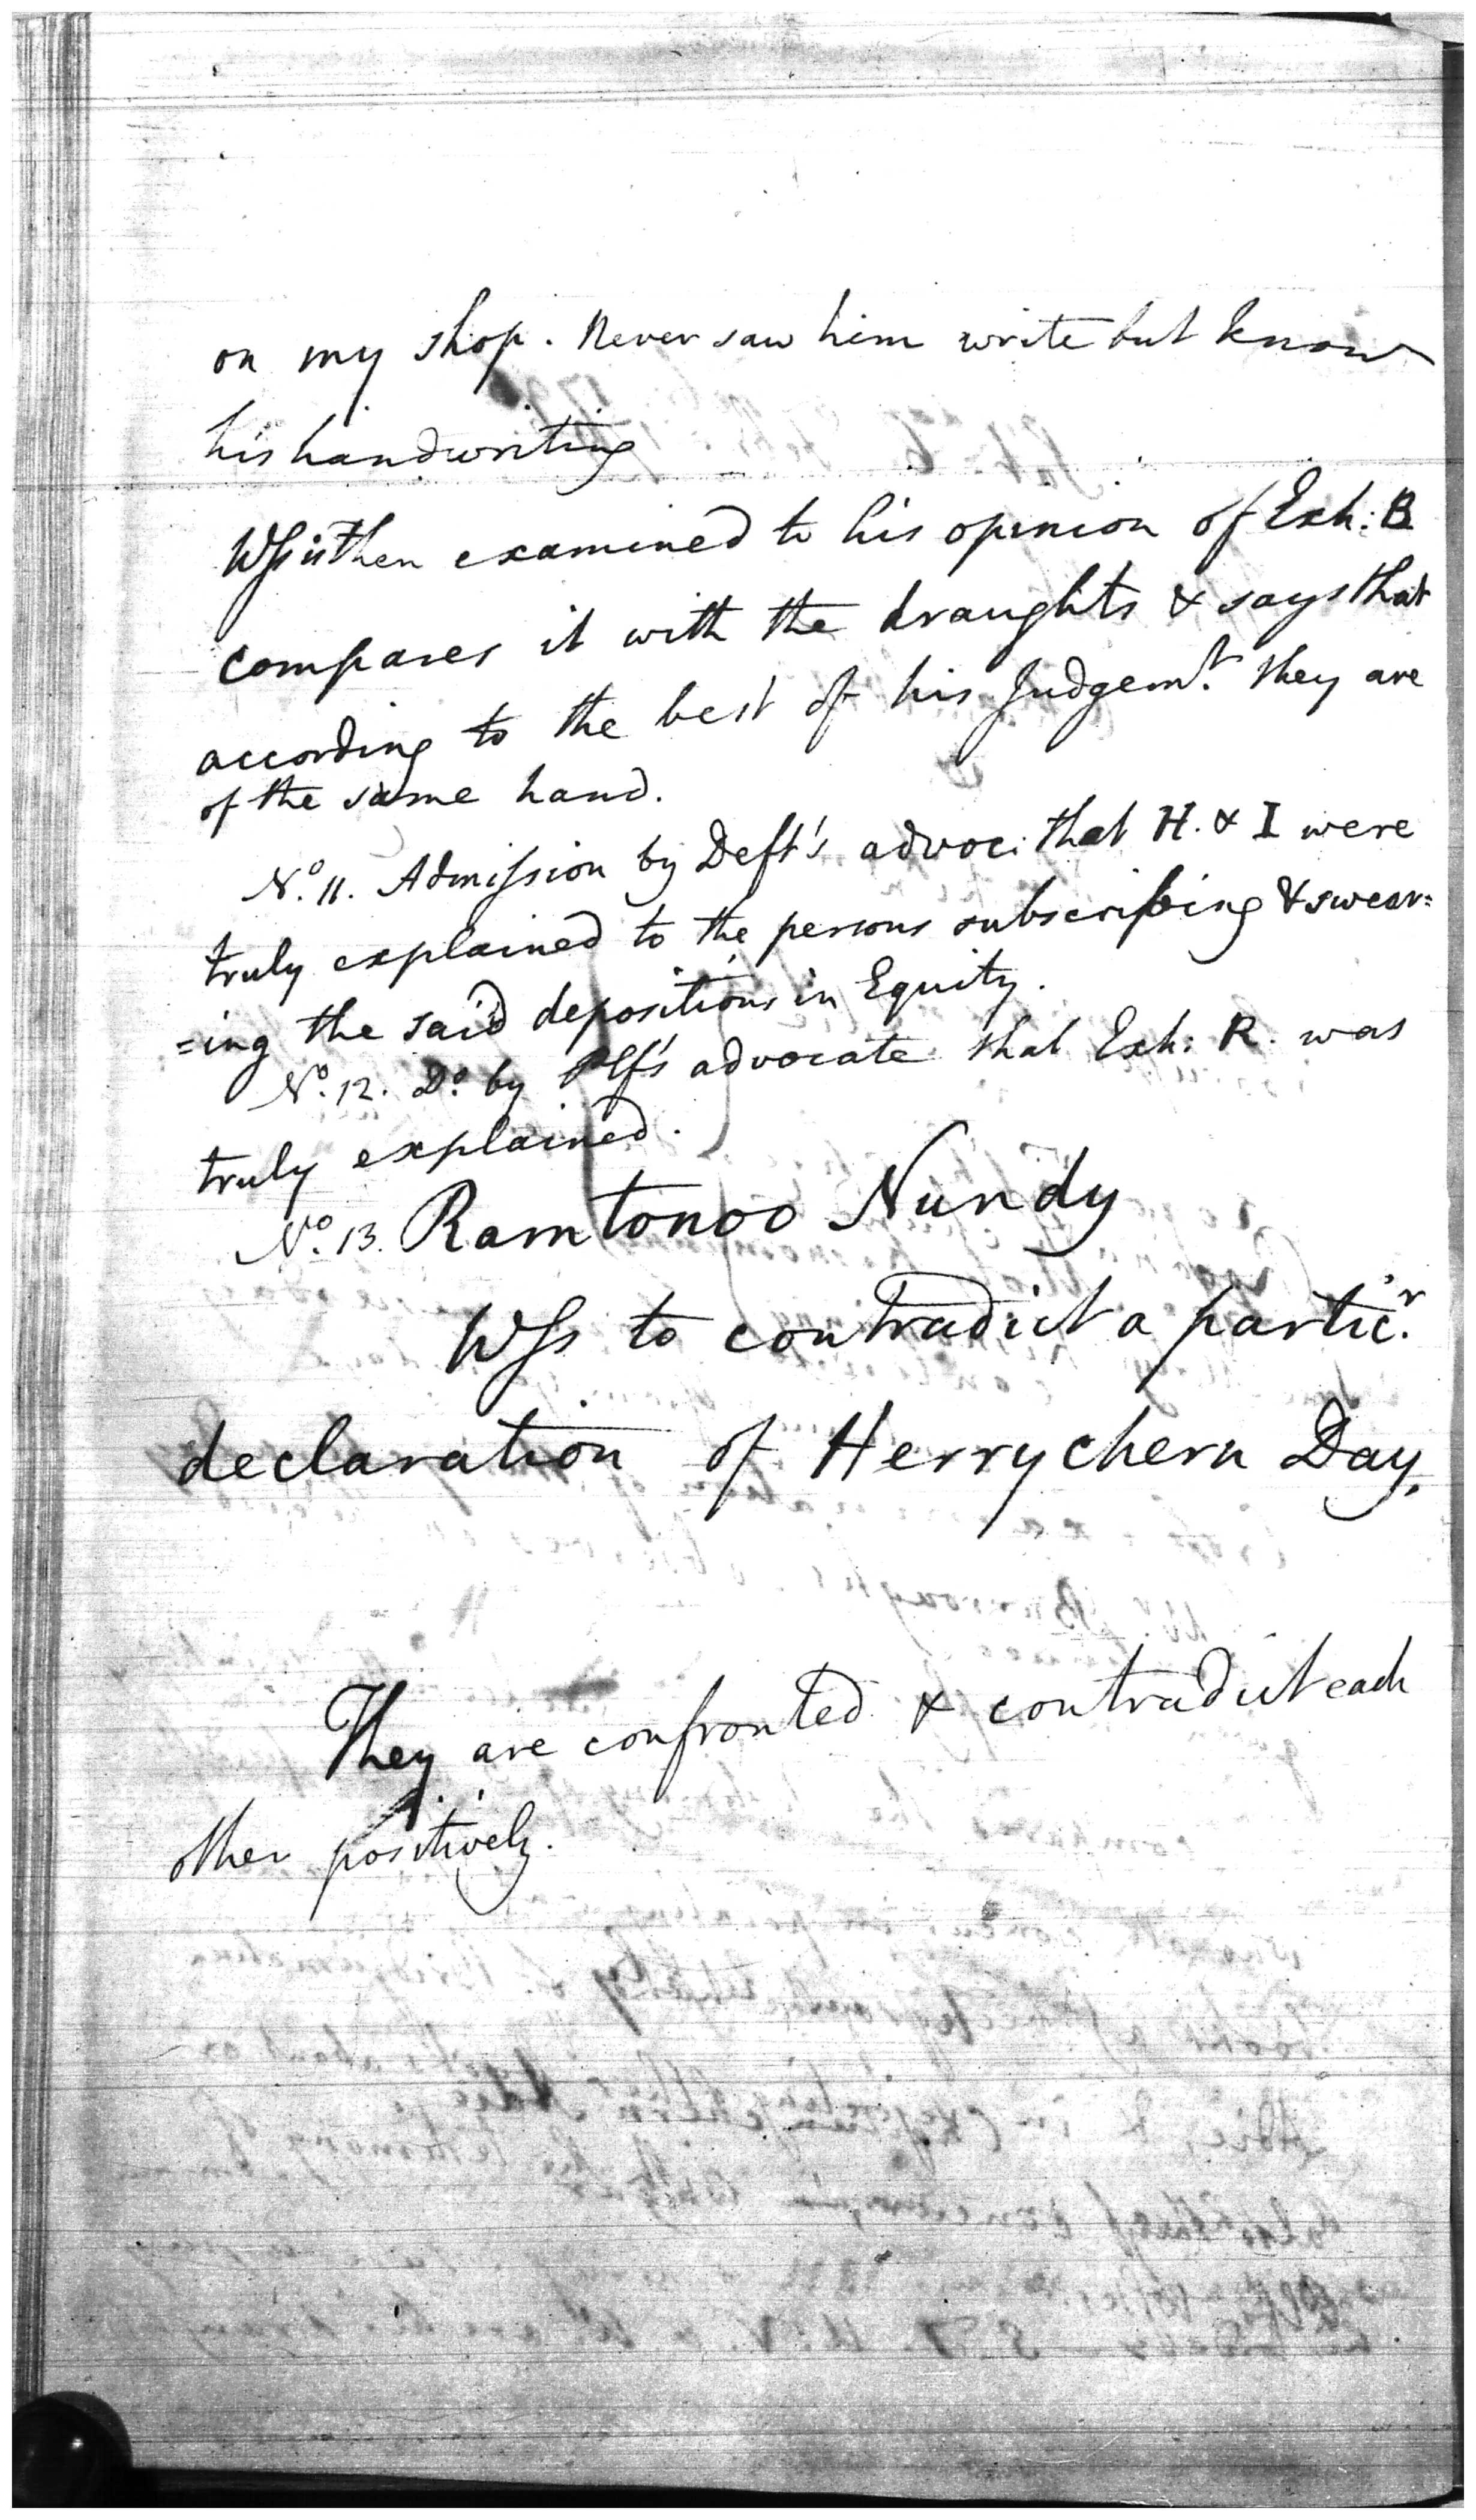 on my shop. Never saw him write but know
his handwriting
Wss is then examined to his opinion of Exh: B
compares it with the draughts & says that
according to the best of his Judgemt. they are
of the same hand.
No. 11. Admission by Deft's advoc: that H. & I were
truly explained to the persons subscribing & swear=
=ing the said depositions in Equity.
No. 12. Do. by Plf's advocate that Exh: R. was
truly explained.
No. 13. Ramtonoo Nundy
Wss to contradict a particr.
declaration of Herrychern Day.
They are confronted & contradict each
other positively.